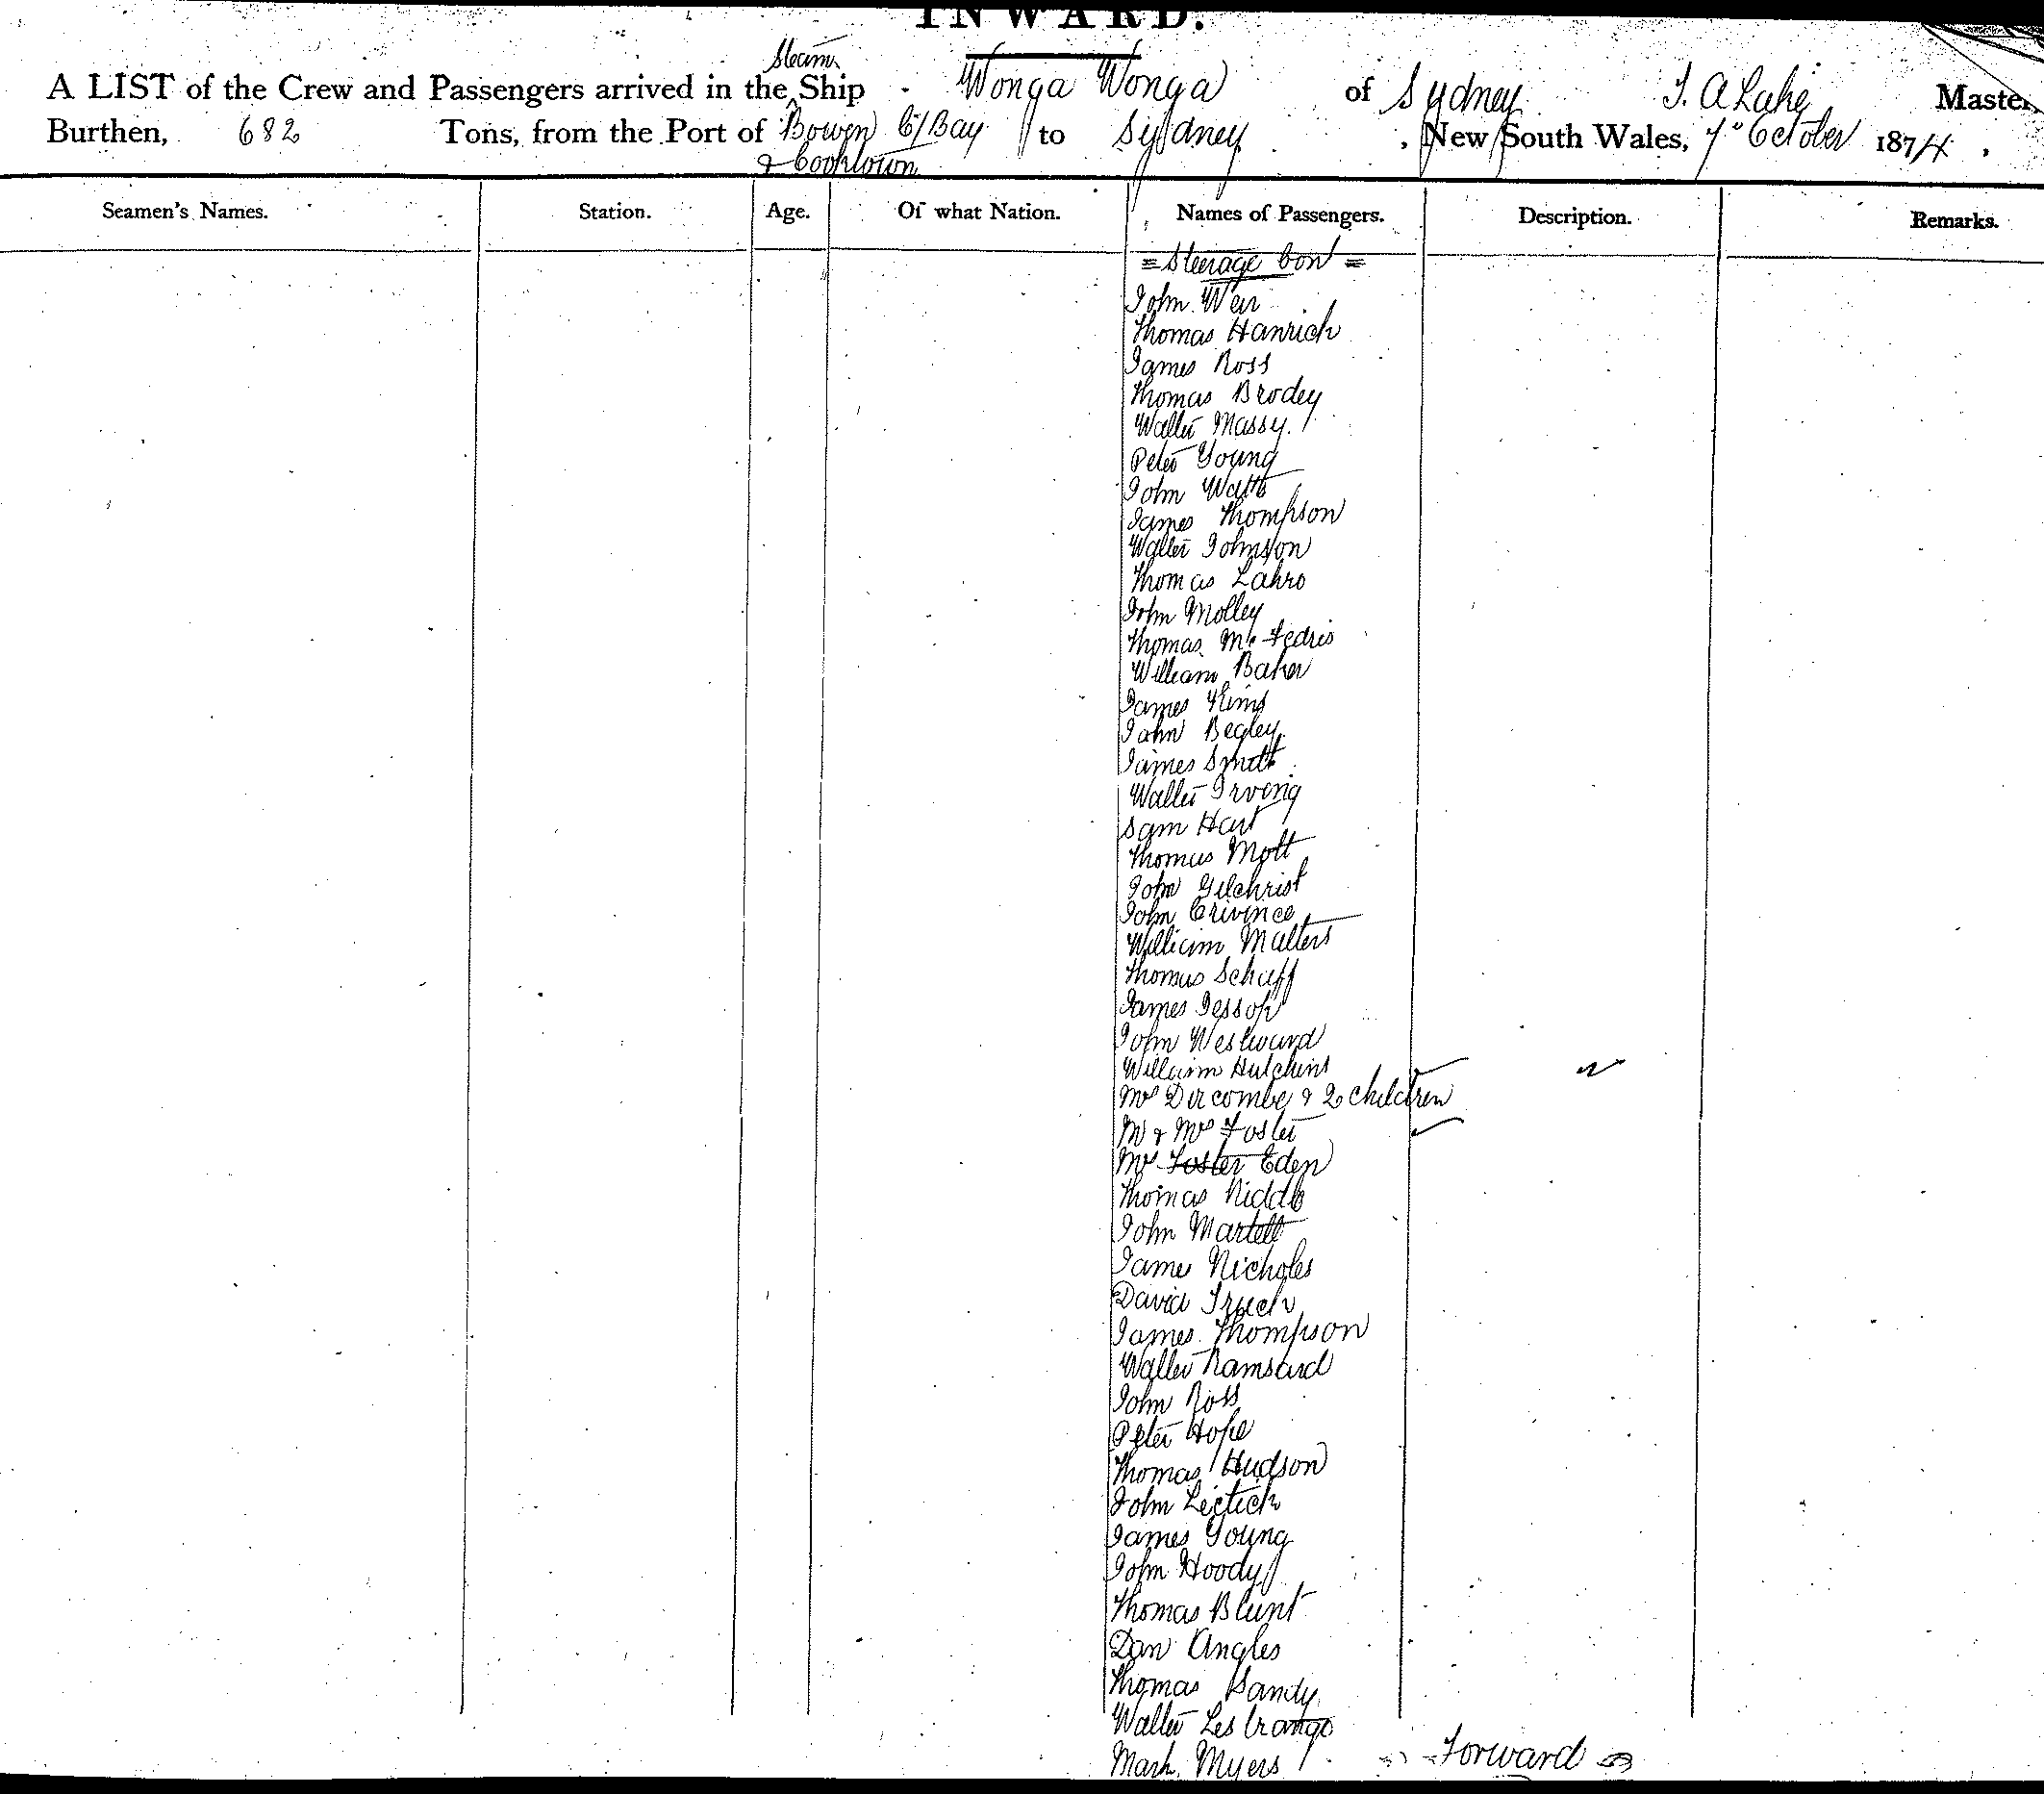 INWARD.
Steam
A LIST of the Crew and Passengers arrived in the ^ Ship Wonga Wonga of Sydney J. A Lake Master,
Burthen, 682 Tons, from the Port of Bowen C/Bay to Sydney, New South Wales, 7" October 1874,
& Cooktown
Seamen's Names. Station. Age. Of what Nation. Names of Passengers. Description. Remarks.
= Steerage Con =
John Weir
Thomas Hanrich
James Ross
Thomas Brodey
Walter Massy
Peter Young
John Watts
James Thompson
Walter Johnson
Thomas Lahro
John Molley
Thomas Mc Fedris
William Baker
James Kims
John Begley
James Smith
Walter Irving
Sam Hart
Thomas Mott
John Gilchrist
John Crivince
William Malters
Thomas Schuff
James Jessop
John Westward
William Hutchins
Mrs Dircombe & 2 children
Mr & Mrs Foster
Mrs Foster Eden
Thomas Riddle
John Martell
James Nicholes
David
James Thompson
Walter Ramsard
John Ross
Peter Hope
Thomas Hudson
John
James Young
John Hoody
Thomas Blunt
Dan Angles
Thomas Bandy
Walter Lestrange
Mark Myers Forward